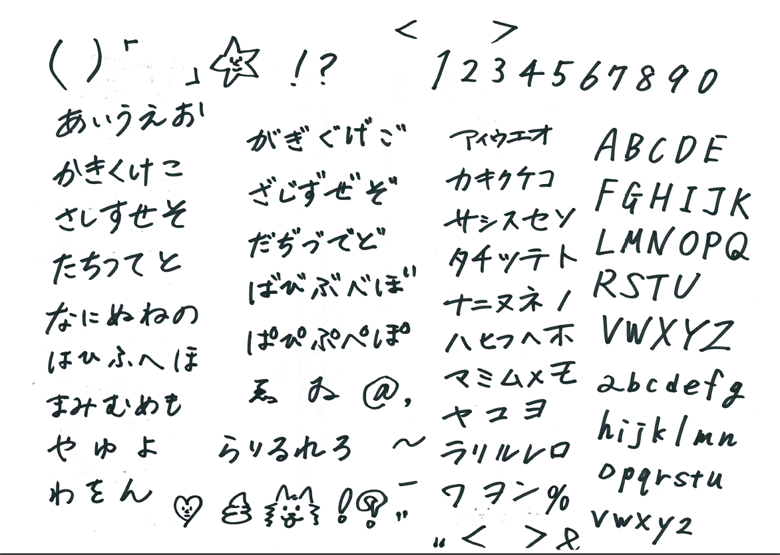 < >
( ) 「 」 ! ?
1 2 3 4 5 6 7 8 9 0
あいうえお
かきくけこ
さしすせそ
たちつてと
なにぬねの
はひふへほ
まみむめも
やゆよ
わをん
がぎぐげご
ざじずぜぞ
だぢづでど
ばびぶべぼ
ぱぴぷぺぽ
ゑ ゐ @ ,
らりるれろ 〜
! ー „
アイウエオ
カキクケコ
サシスセソ
タチツテト
ナニヌネノ
ハヒフヘホ
マミムメモ
ヤユヨ
ラリルレロ
ワヲン%
„ < > &
ABCDE
FGHIJK
LMNOPQ
RSTU
VWXYZ
abcdefg
hijklmn
opqrstu
vwxyz